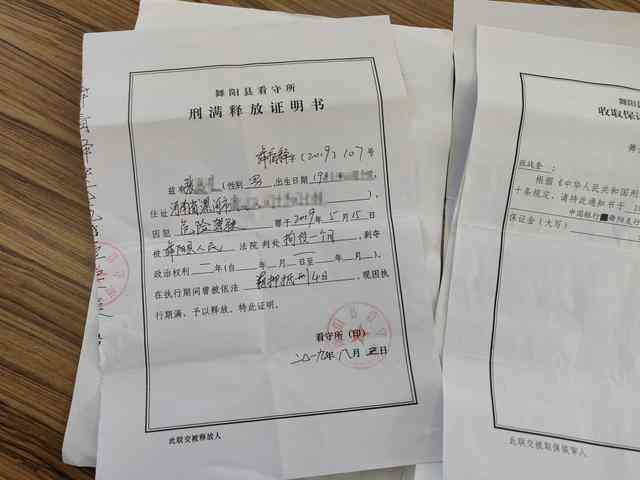 舞阳县看守所
刑满释放证明书
舞看释字(2019)107号
兹有 (性别 男 出生日期 198
住址 河南省漯河市
因犯 危险驾驶 罪于2019年5月15日
被 舞阳县人民 法院判处 拘役一个月 剥夺
政治权利 一 年(自 年 月 日至 年 月)。
在执行期间曾被依法 羁押抵刑4日 ,现因执
行期满,予以释放,特此证明。
看守所(印)
二〇一九年八月 日
此联交被释放人
舞阳县
收取保证
舞
张战奎:
根据《中华人民共和国刑
十条规定,请持此通知书于
中国银行 舞阳支行
保证金(大写)
此联交被取保候审人